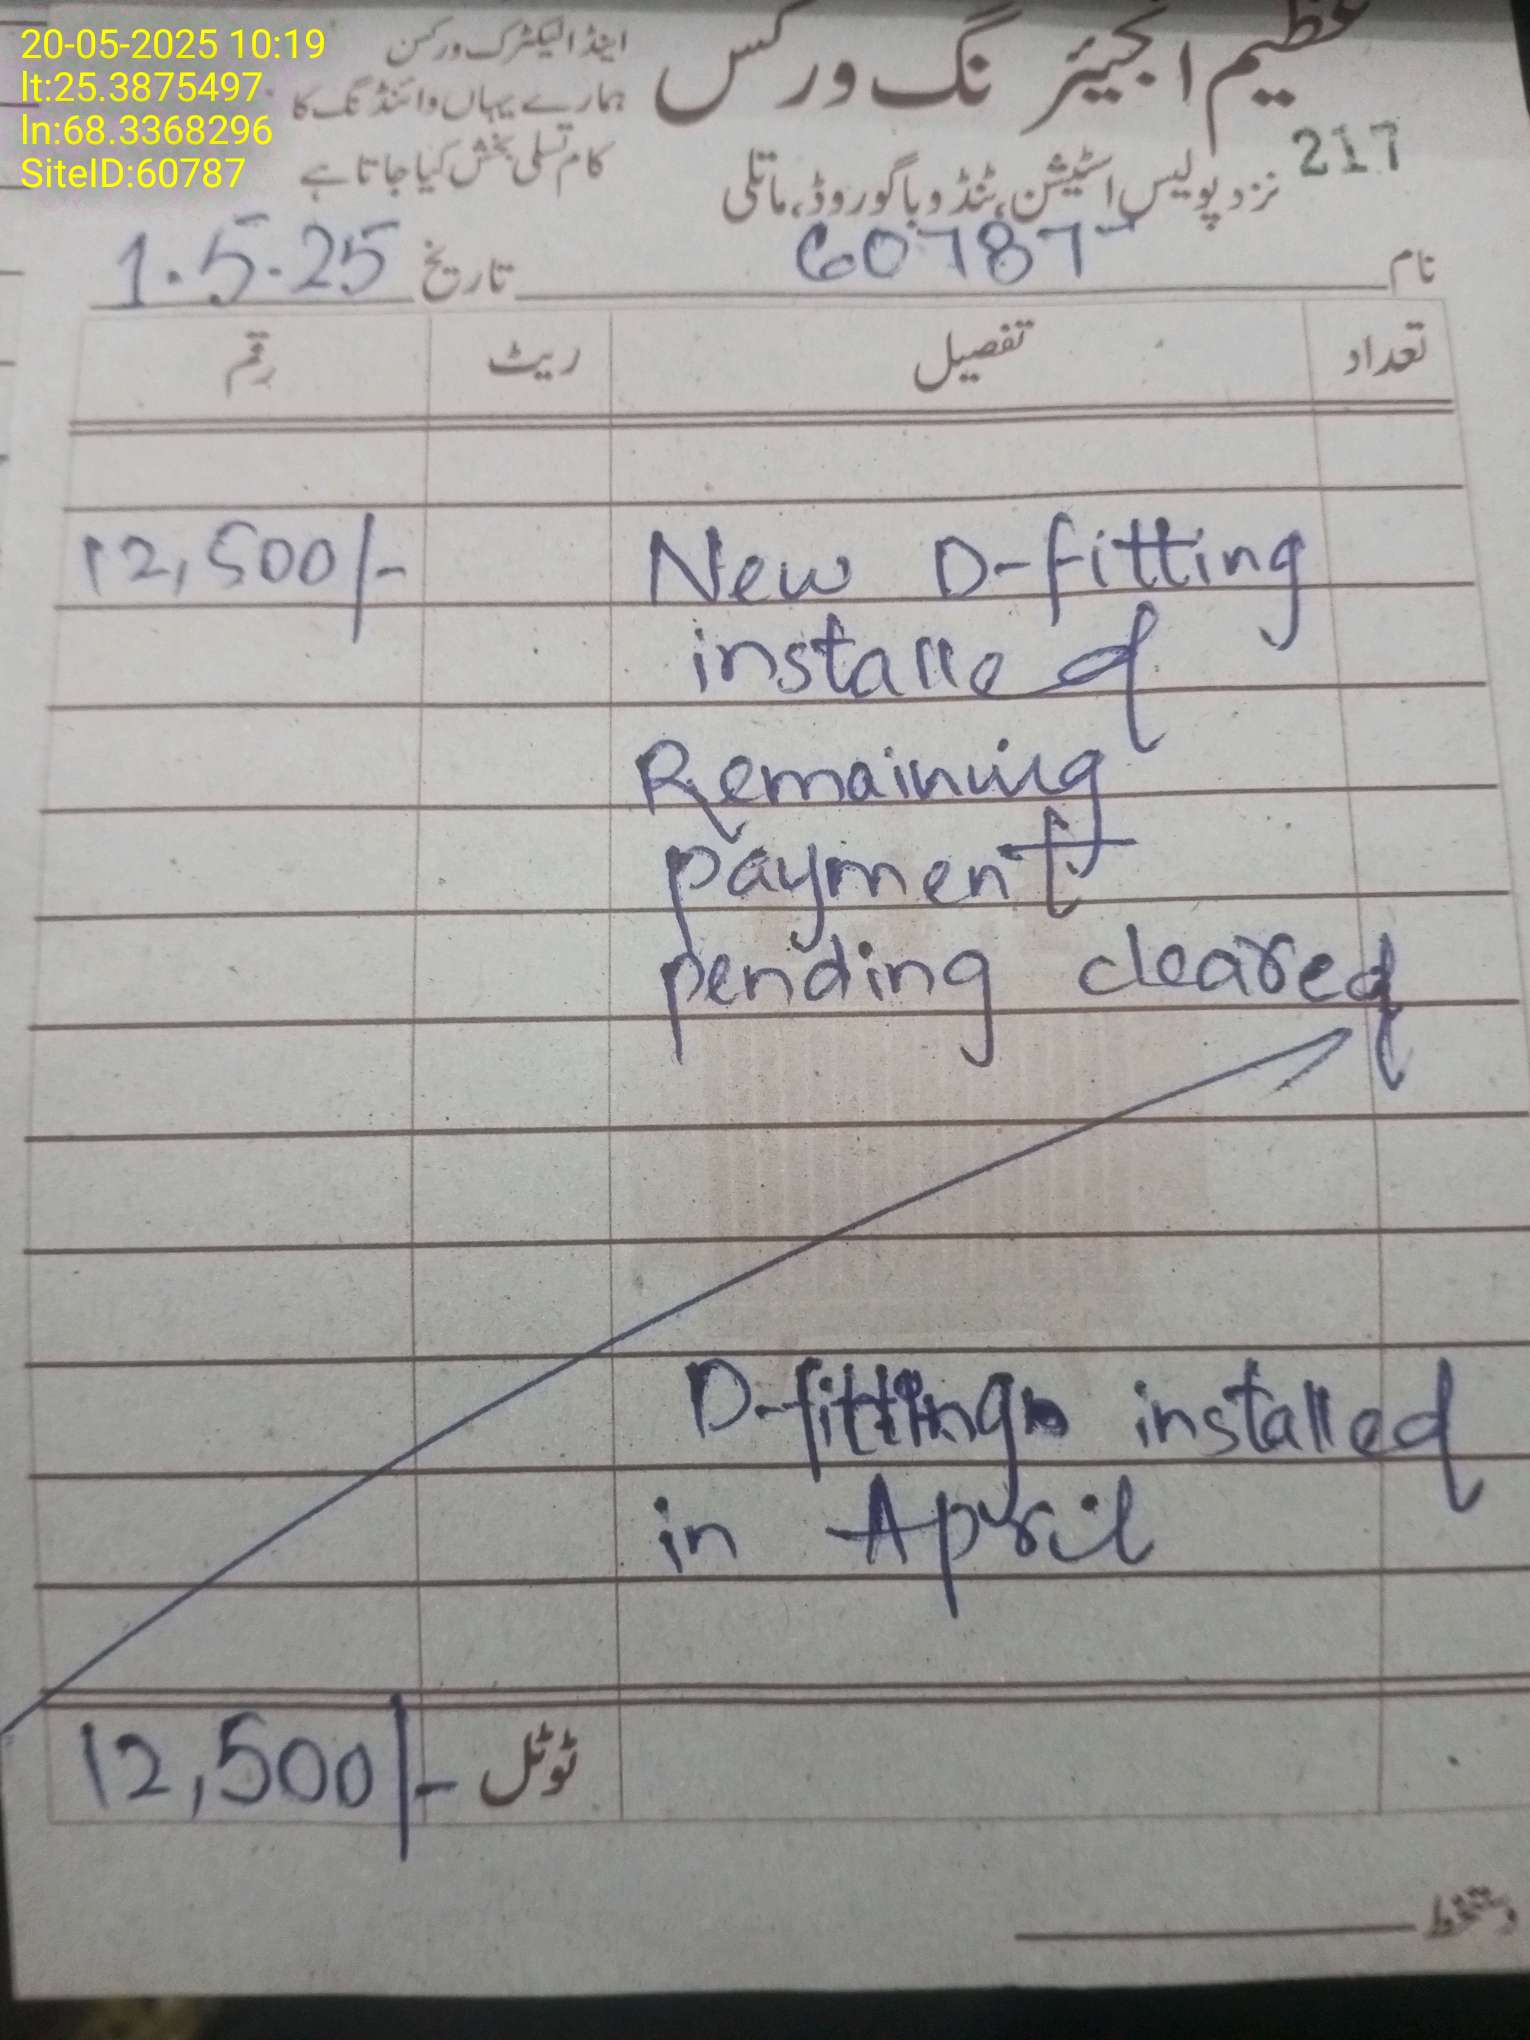 20-05-2025 10:19
lt:25.3875497
ln:68.3368296
SiteID:60787
عظیم انجینئرنگ ورکس
اینڈ الیکٹرک ورکس
ہمارے یہاں وائنڈنگ کا
کام تسلی بخش کیا جاتا ہے
217
نزد پولیس اسٹیشن، ٹنڈو باگو روڈ، ماتلی
نام 60787 تاریخ 1.5.25
تعداد تفصیل ریٹ رقم
New D-fitting 12,500/-
installed
Remaining
payment
pending cleared
D-fitting installed
in April
ٹوٹل 12,500/-
دستخط